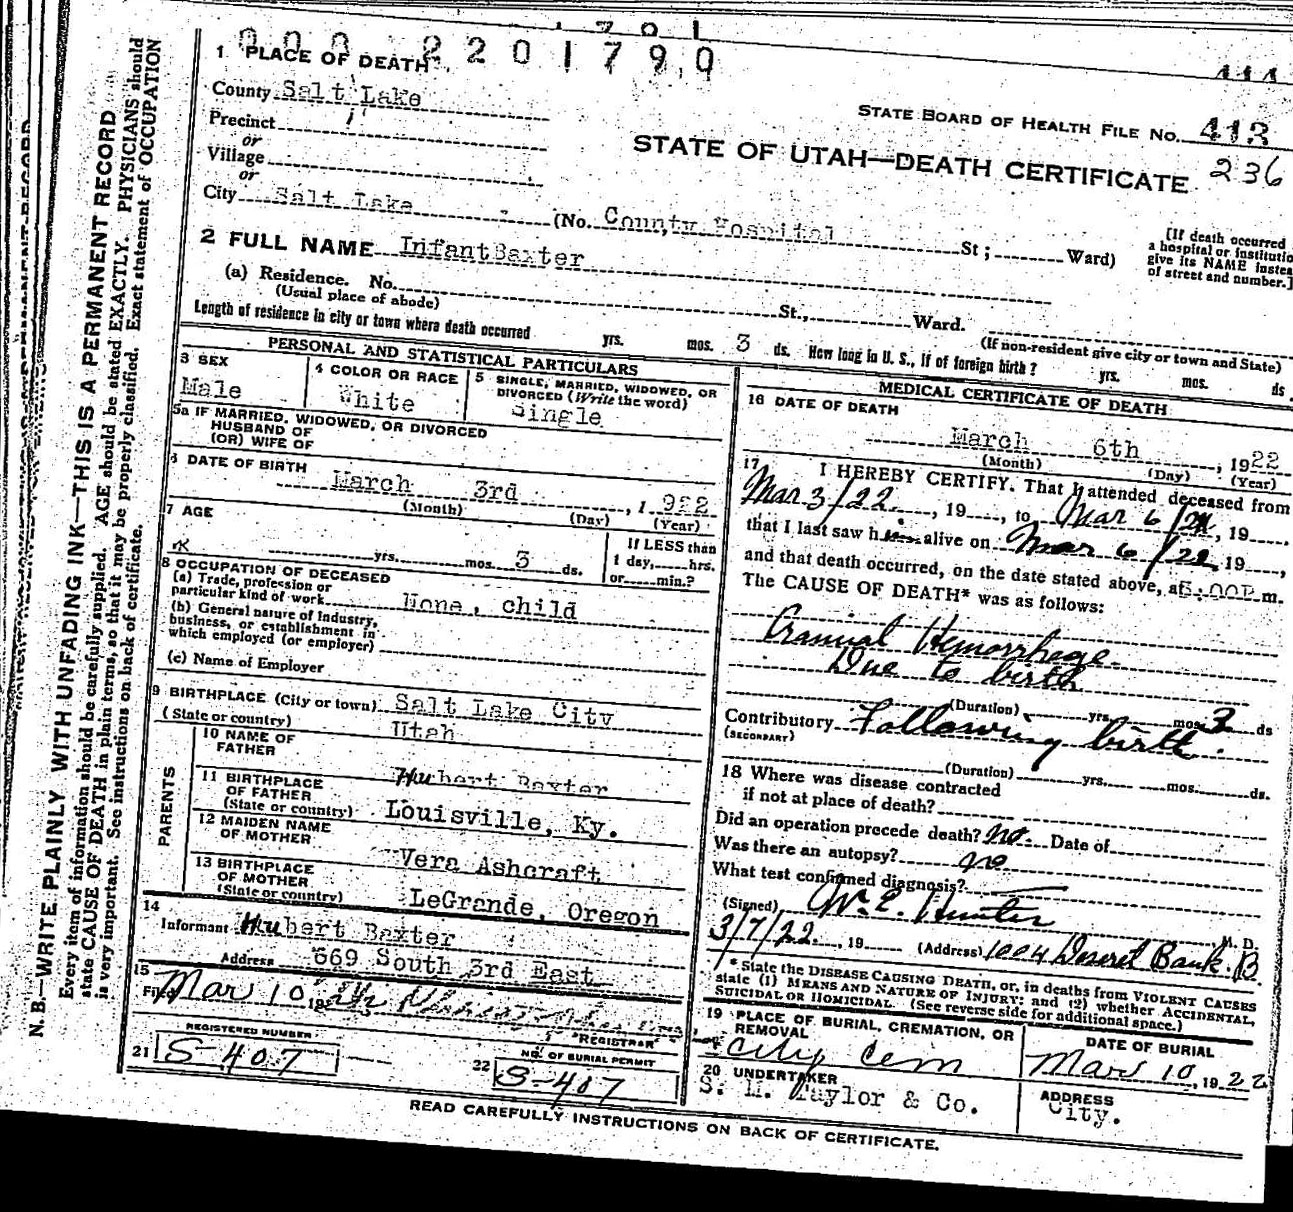 000 2201790
1 PLACE OF DEATH
County Salt Lake
Precinct
or
Village
or
City Salt Lake (No. County Hospital St; Ward)
STATE BOARD OF HEALTH FILE NO. 413
236
STATE OF UTAH—DEATH CERTIFICATE
[If death occurred
a hospital or institutio
give its NAME instea
of street and number.]
2 FULL NAME Infant Baxter
(a) Residence. No. St., Ward.
(Usual place of abode)
(If non-resident give city or town and State)
Length of residence in city or town where death occurred yrs. mos. 3 ds. How long in U. S., if of foreign birth? yrs. mos. ds.
PERSONAL AND STATISTICAL PARTICULARS
3 SEX
Male
4 COLOR OR RACE
White
5 SINGLE, MARRIED, WIDOWED, OR
DIVORCED (Write the word)
Single
5a IF MARRIED, WIDOWED, OR DIVORCED
HUSBAND OF
(OR) WIFE OF
6 DATE OF BIRTH
March 3rd, 1 922
(Month) (Day) (Year)
7 AGE
yrs. mos. 3 ds.
If LESS than
1 day, hrs.
or min.?
8 OCCUPATION OF DECEASED
(a) Trade, profession or
particular kind of work None, child
(b) General nature of Industry,
business, or establishment in
which employed (or employer)
(c) Name of Employer
9 BIRTHPLACE (City or town) Salt Lake City
(State or country) Utah
PARENTS
10 NAME OF
FATHER
Hubert Baxter
11 BIRTHPLACE
OF FATHER
(State or country) Louisville, Ky.
12 MAIDEN NAME
OF MOTHER
Vera Ashcraft
13 BIRTHPLACE
OF MOTHER
(State or country) LeGrande, Oregon
14
Informant Hubert Baxter
Address 669 South 3rd East
15
Filed Mar 10 192
REGISTRAR
REGISTERED NUMBER
21 S-407
NO. OF BURIAL PERMIT
22 S-407
MEDICAL CERTIFICATE OF DEATH
16 DATE OF DEATH
March 6th, 1922
(Month) (Day) (Year)
17 I HEREBY CERTIFY. That I attended deceased from
Mar 3/22, 19, to Mar 6/22, 19
that I last saw h alive on Mar 6/22, 19,
and that death occurred, on the date stated above, at 5:00P.m.
The CAUSE OF DEATH* was as follows:
Cranial Hemorrhege
Due to birth
(Duration) yrs mos 3 ds
Contributory Following birth.
(SECONDARY)
(Duration) yrs. mos. ds.
18 Where was disease contracted
if not at place of death?
Did an operation precede death? no. Date of
Was there an autopsy? no
What test confirmed diagnosis?
(Signed) W. E. Hunter M. D.
3/7/22, 19 (Address) 1004 Deseret Bank. B
* State the DISEASE CAUSING DEATH, or, in deaths from VIOLENT CAUSES
state (1) MEANS AND NATURE OF INJURY; and (2) whether ACCIDENTAL,
SUICIDAL OR HOMICIDAL. (See reverse side for additional space.)
19 PLACE OF BURIAL, CREMATION, OR
REMOVAL
City Cem
DATE OF BURIAL
Mar 10, 1922
20 UNDERTAKER
S. M. Taylor & Co.
ADDRESS
City.
READ CAREFULLY INSTRUCTIONS ON BACK OF CERTIFICATE.
N. B.—WRITE PLAINLY WITH UNFADING INK—THIS IS A PERMANENT RECORD
Every item of information should be carefully supplied. AGE should be stated EXACTLY. PHYSICIANS should
state CAUSE OF DEATH in plain terms, so that it may be properly classified. Exact statement of OCCUPATION
is very important. See instructions on back of certificate.